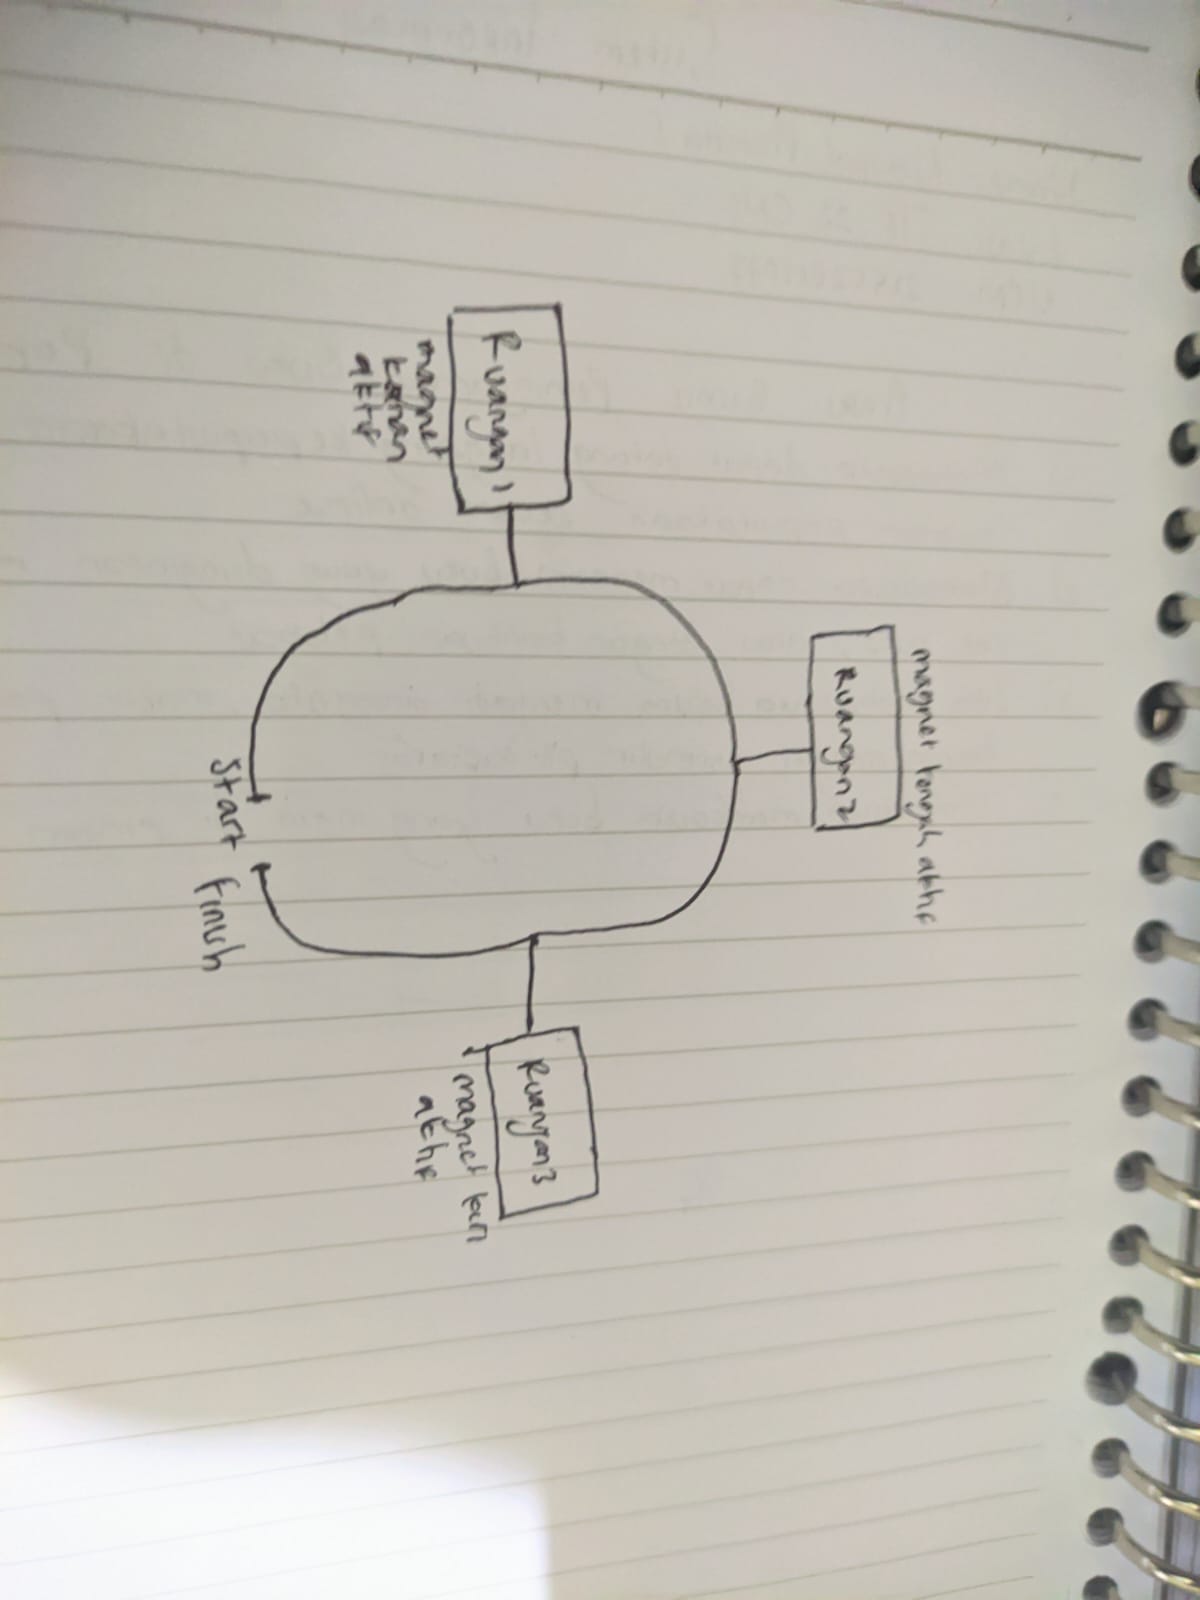 magnet tengah aktif
Ruangan 2
Ruangan 1
magnet
kanan
aktif
Ruangan 3
magnet kiri
aktif
Start
Finish